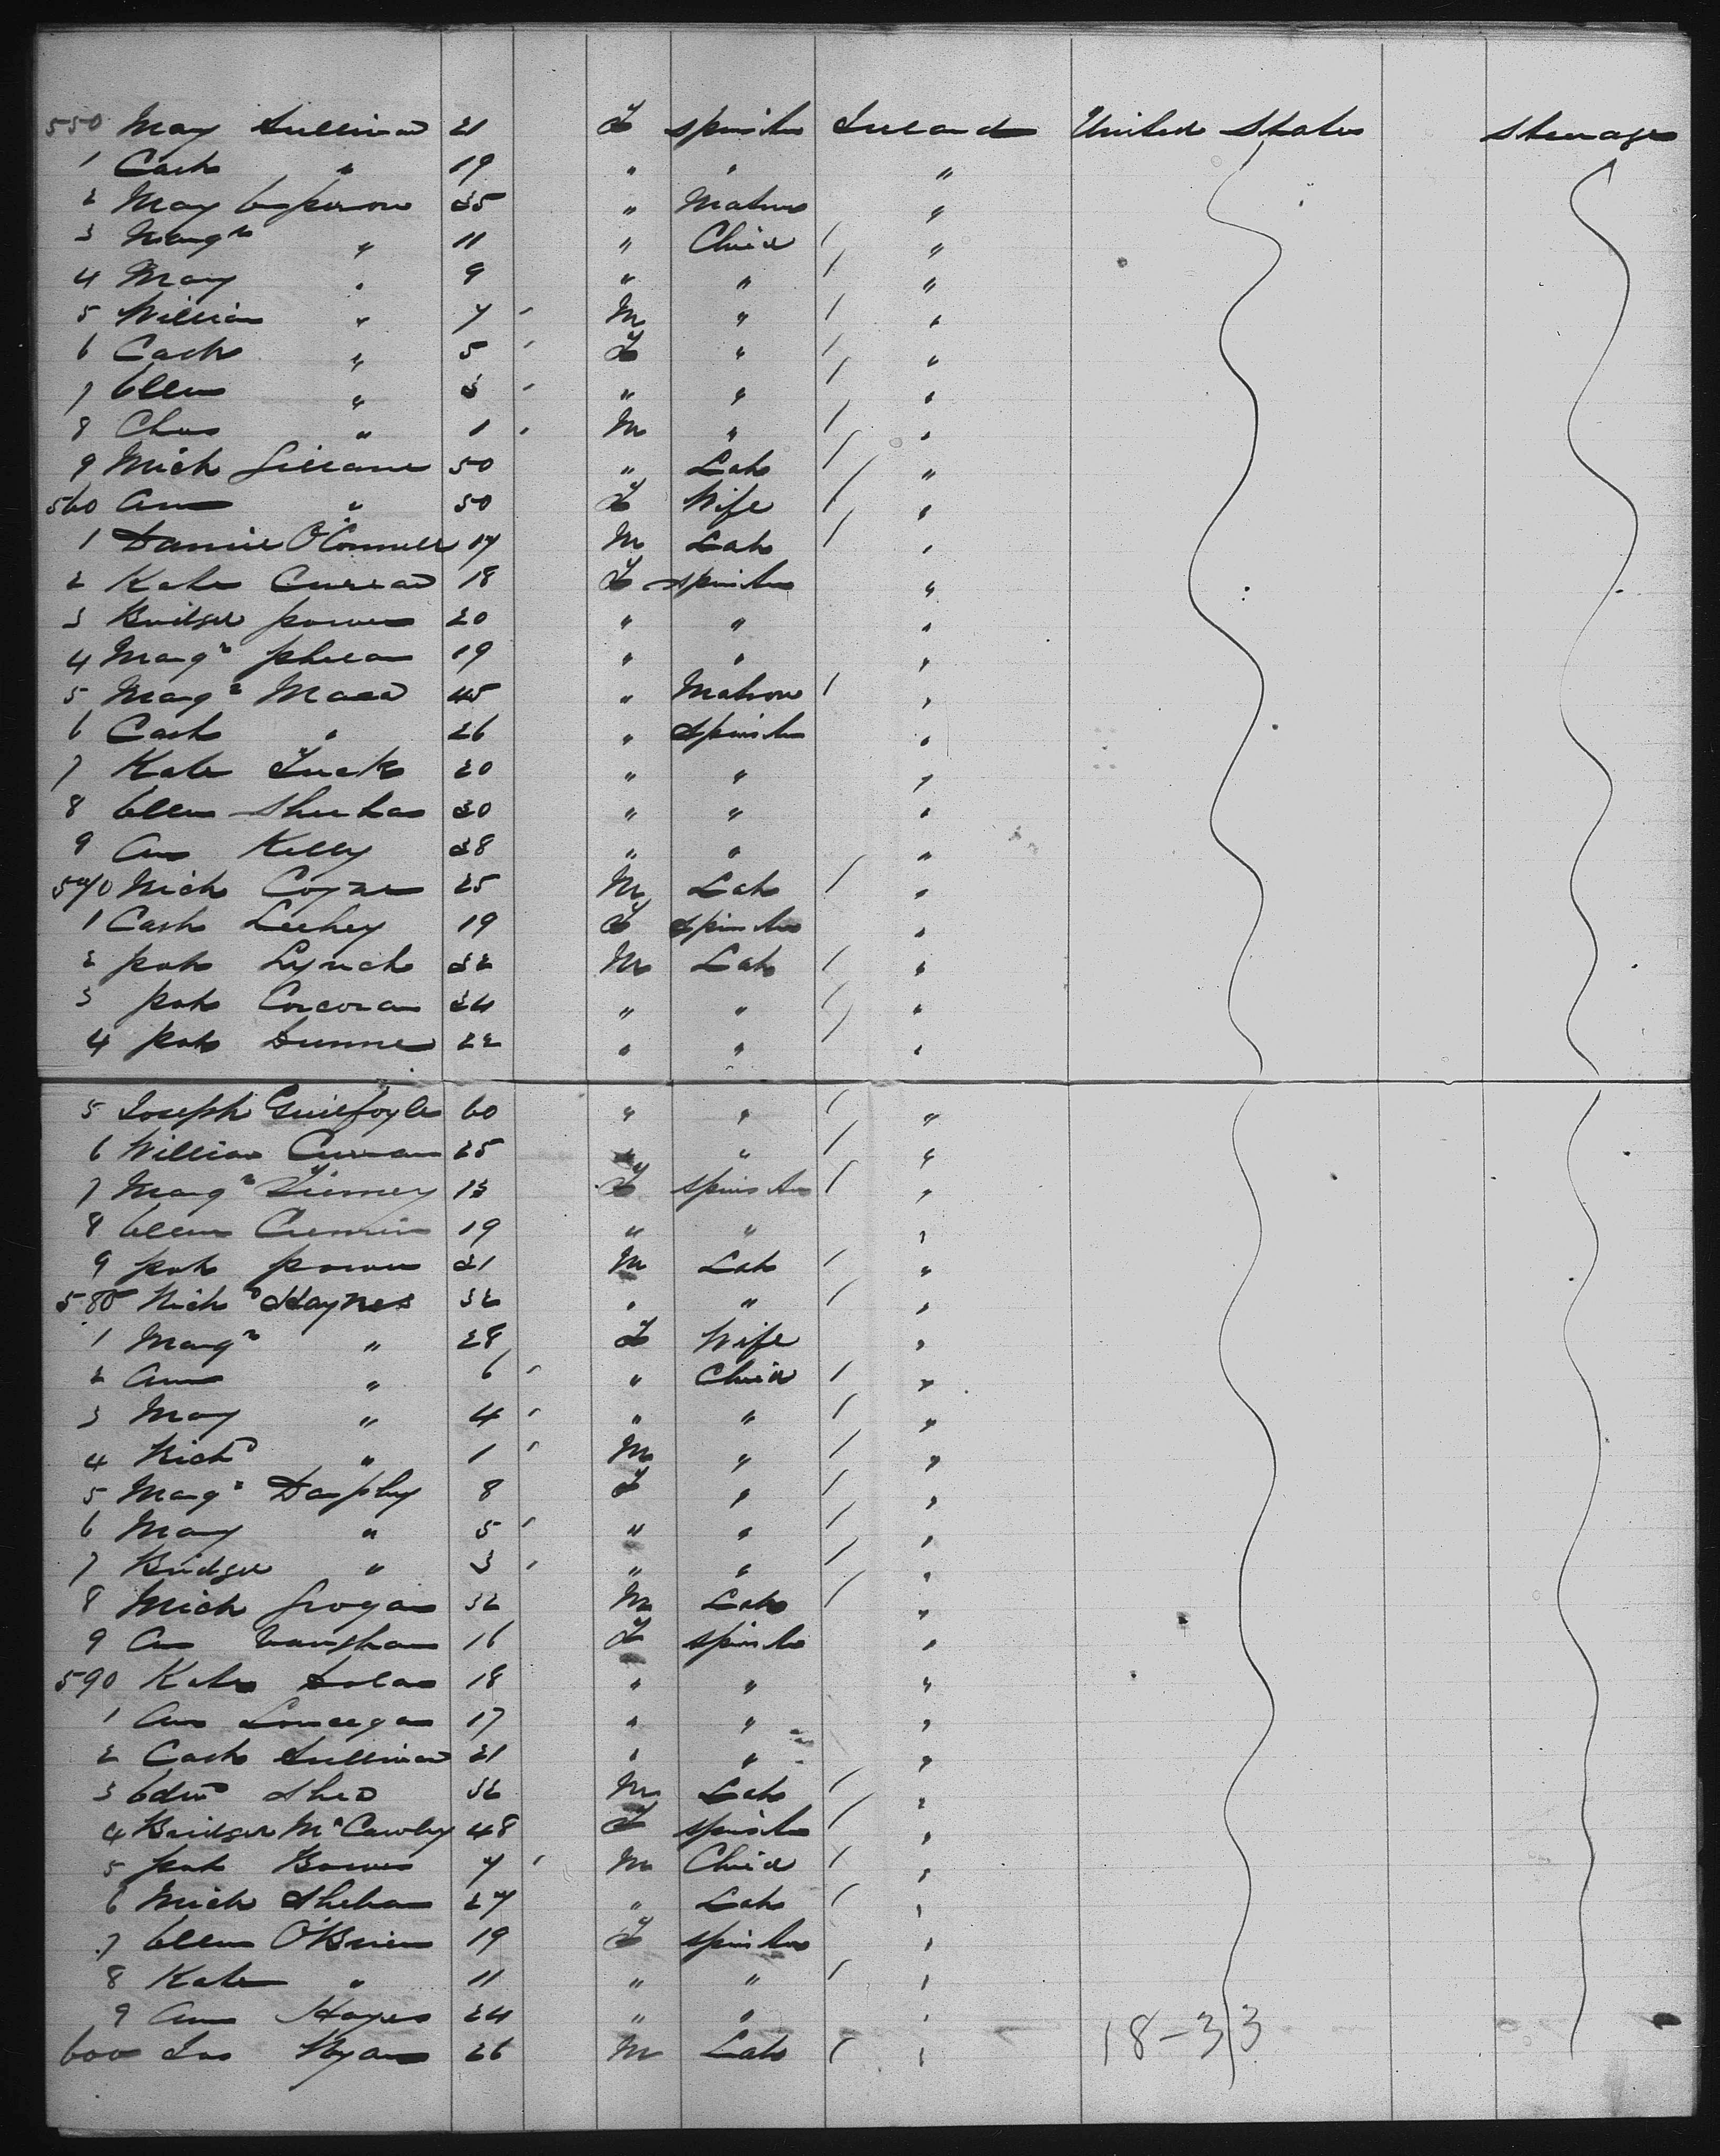 550 Mary Sullivan 21 F Spinster Ireland United States Steerage
1 Cath " 19 " " "
2 Mary 35 " Matron "
3 Margt " 11 " Child / "
4 Mary " 9 " " / "
5 William " 7 M " / "
6 Cath " 5 F " / "
7 Ellen " 3 " " / "
8 Chas " 1 M " / "
9 Mich 50 " Lab / "
560 Ann " 50 F Wife / "
1 Daniel O'Connell 17 M Lab / "
2 Kate Curran 18 F Spinster "
3 Bridget Power 20 " " "
4 Margt Phelan 19 " " "
5 Margt 45 " Matron / "
6 Cath " 26 " Spinster "
7 Kate Tuck 20 " " "
8 Ellen Sheehan 30 " " "
9 Ann Kelly 38 " " "
570 Mich Coyne 25 M Lab / "
1 Cath Leehey 19 F Spinster "
2 Pat Lynch 32 M Lab / "
3 Pat Corcoran 34 " " / "
4 Pat Dunne 22 " " / "
5 Joseph Guilfoyle 60 " " / "
6 William Curran 25 " " / "
7 Margt 13 F Spinster / "
8 Ellen Cremin 19 " " "
9 Pat Power 21 M Lab / "
580 Richd Haynes 32 " " / "
1 Margt " 28 F Wife "
2 Ann " 6 " Child / "
3 Mary " 4 " " / "
4 Richd " 1 M " / "
5 Margt 8 F " / "
6 Mary " 5 " " / "
7 Bridget " 3 " " / "
8 Mich Grogan 32 M Lab / "
9 Ann 16 F Spinster "
590 Kate Dolan 18 " " "
1 Ann Lonergan 17 " " "
2 Cath Sullivan 21 " " "
3 Edwd Shea M Lab / "
4 Bridget 48 F Spinster / "
5 Pat 7 M Child / "
6 Mich 27 " Lab / "
7 Ellen O'Brien 19 F Spinster "
8 Kate " 11 " " / "
9 Ann Hayes 24 " " "
600 Jno Ryan 26 M Lab / "
18-33